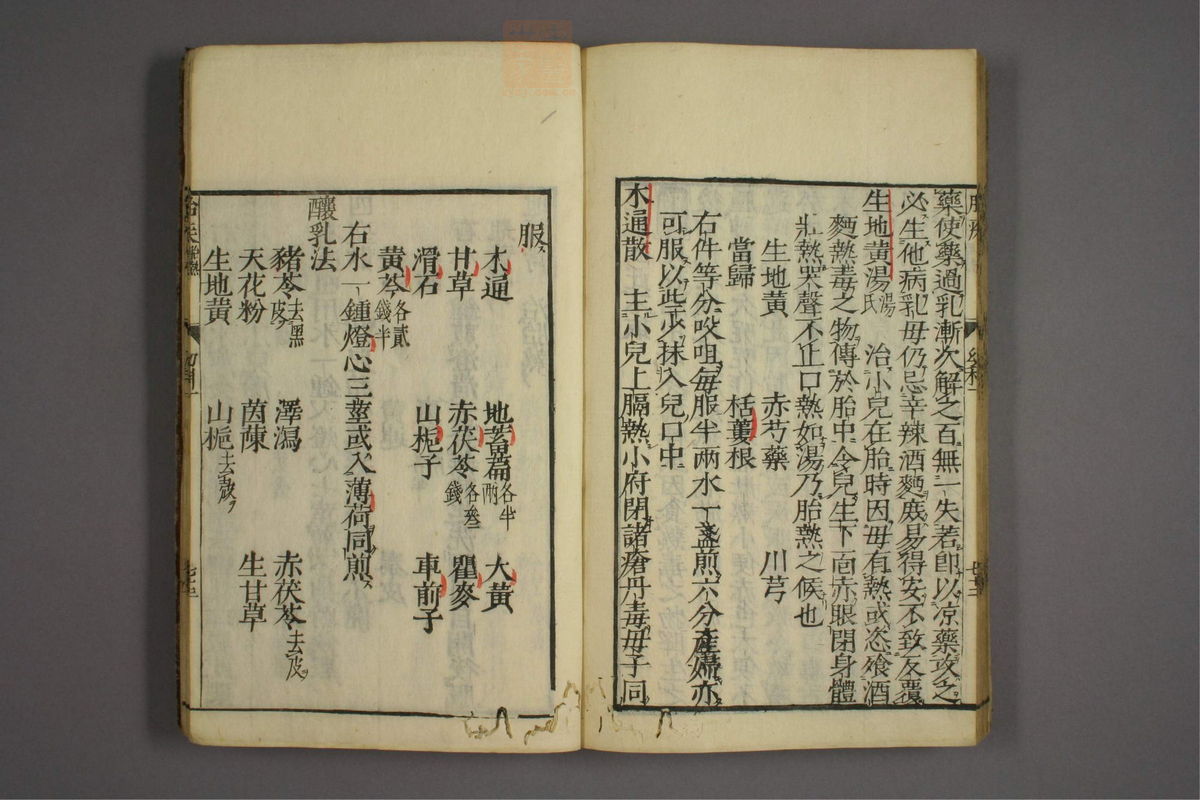 藥使藥過乳漸次解之百無一失若卽以凉藥攻之
必生他病乳母仍忌辛辣酒麪庶易得安不致反覆
生地黃湯 湯氏 治小兒在胎時因母有熱或恣飧酒
麪熱毒之物傳於胎中令兒生下面赤眼閉身體
壯熱哭聲不止口熱如湯乃胎熱之候也
生地黃 赤芍藥 川芎
當歸 栝蔞根
右件等分㕮咀每服半兩水一盞煎六分產婦亦
可服以些少抹入兒口中
木通散 主小兒上膈熱小府閉諸瘡丹毒母子同
服
木通 地萹蓄各半兩 大黃
甘草 赤茯苓各叁錢 瞿麥
滑石 山梔子 車前子
黃芩各貳錢半
右水一鍾燈心三莖或入薄荷同煎
釀乳法
豬苓去黑皮 澤瀉 赤茯苓去皮
天花粉 茵蔯 生甘草
生地黃 山梔去殼
幼科一
七十三